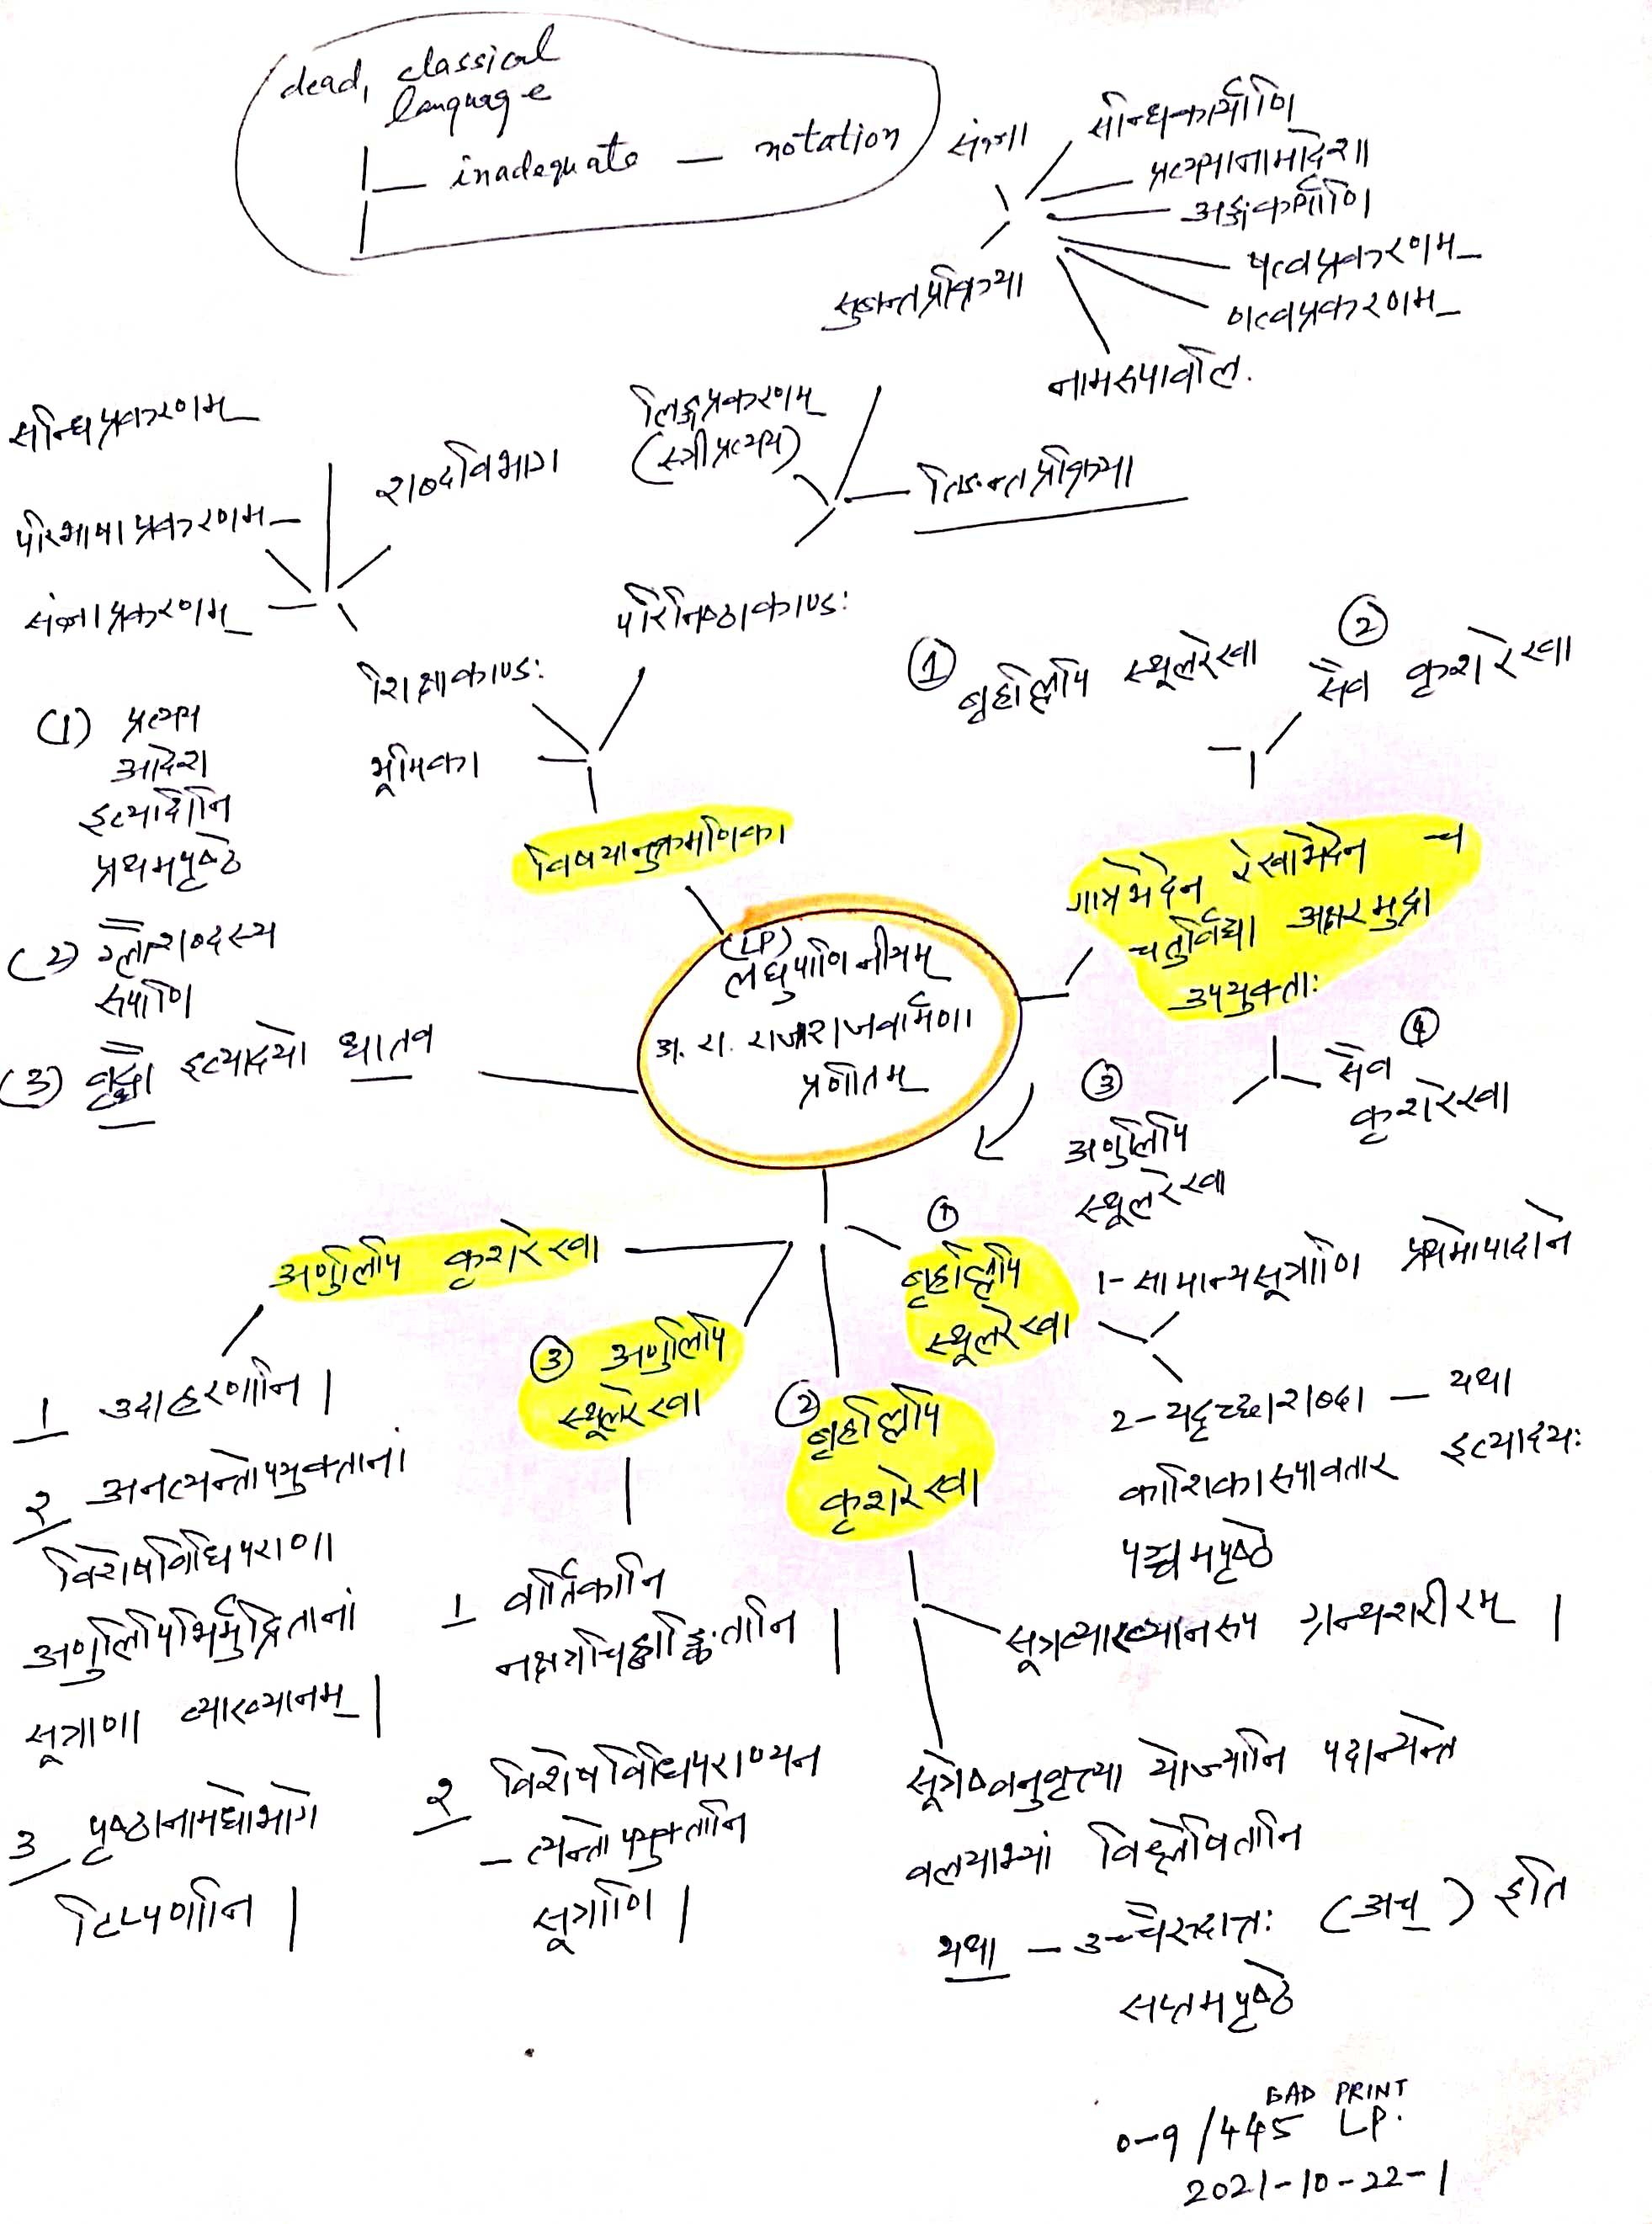 dead, classical
language
inadequate — notation
संज्ञा
सन्धिकार्याणि
प्रत्ययानामादेशा
अङ्गकार्याणि
षत्वप्रकरणम्
णत्वप्रकरणम्
नामरूपावलि.
सुबन्तप्रक्रिया
लिङ्गप्रकरणम्
(स्त्रीप्रत्यय)
तिङन्तप्रक्रिया
परिनिष्ठाकाण्डः
सन्धिप्रकरणम्
परिभाषाप्रकरणम्
संज्ञाप्रकरणम्
शब्दविभाग
शिक्षाकाण्डः
भूमिका
विषयानुक्रमणिका
(1) प्रत्यय
आदेश
इत्यादीनि
प्रथमपृष्ठे
(2) ग्लौशब्दस्य
रूपाणि
(3) इत्यादयो धातव
(LP)
लघुपाणिनीयम्
अ. रा. राजराजवर्मणा
प्रणीतम्
① बृहल्लिपि स्थूलरेखा
②
सैव कृशरेखा
गात्रभेदेन रेखाभेदेन च
चतुर्विधा अक्षरमुद्रा
उपयुक्ताः
③
अणुलिपि
स्थूलरेखा
④
सैव
कृशरेखा
①
बृहल्लिपि
स्थूलरेखा
1- सामान्यसूत्राणि प्रथमोपादाने
2- यदृच्छाशब्दा — यथा
काशिका रूपावतार इत्यादयः
पञ्चमपृष्ठे
②
बृहल्लिपि
कृशरेखा
सूत्रव्याख्यानरूप ग्रन्थशरीरम् |
सूत्रेष्वनुवृत्त्या योज्यानि पदान्यन्ते
वलयाभ्यां विश्लेषितानि
यथा — उच्चैरुदात्तः (अच्) इति
सप्तमपृष्ठे
③ अणुलिपि
स्थूलरेखा
1 वार्तिकानि
नक्षत्रचिह्नाङ्कितानि |
२ विशेषविधिपराण्यन
– त्यन्तोपयुक्तानि
सूत्राणि |
अणुलिपि कृशरेखा
1 उदाहरणानि |
२ अनत्यन्तोपयुक्तानां
विशेषविधिपराणा
अणुलिपिभिर्मुद्रितानां
सूत्राणा व्याख्यानम् |
3 पृष्ठानामधोभागे
टिप्पणानि |
BAD PRINT
0-9/445 LP.
2021-10-22-1